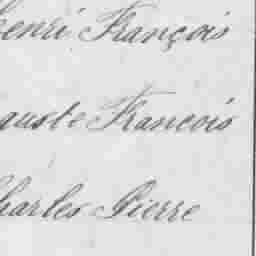 henri François
guste Francois
Charles Pierre